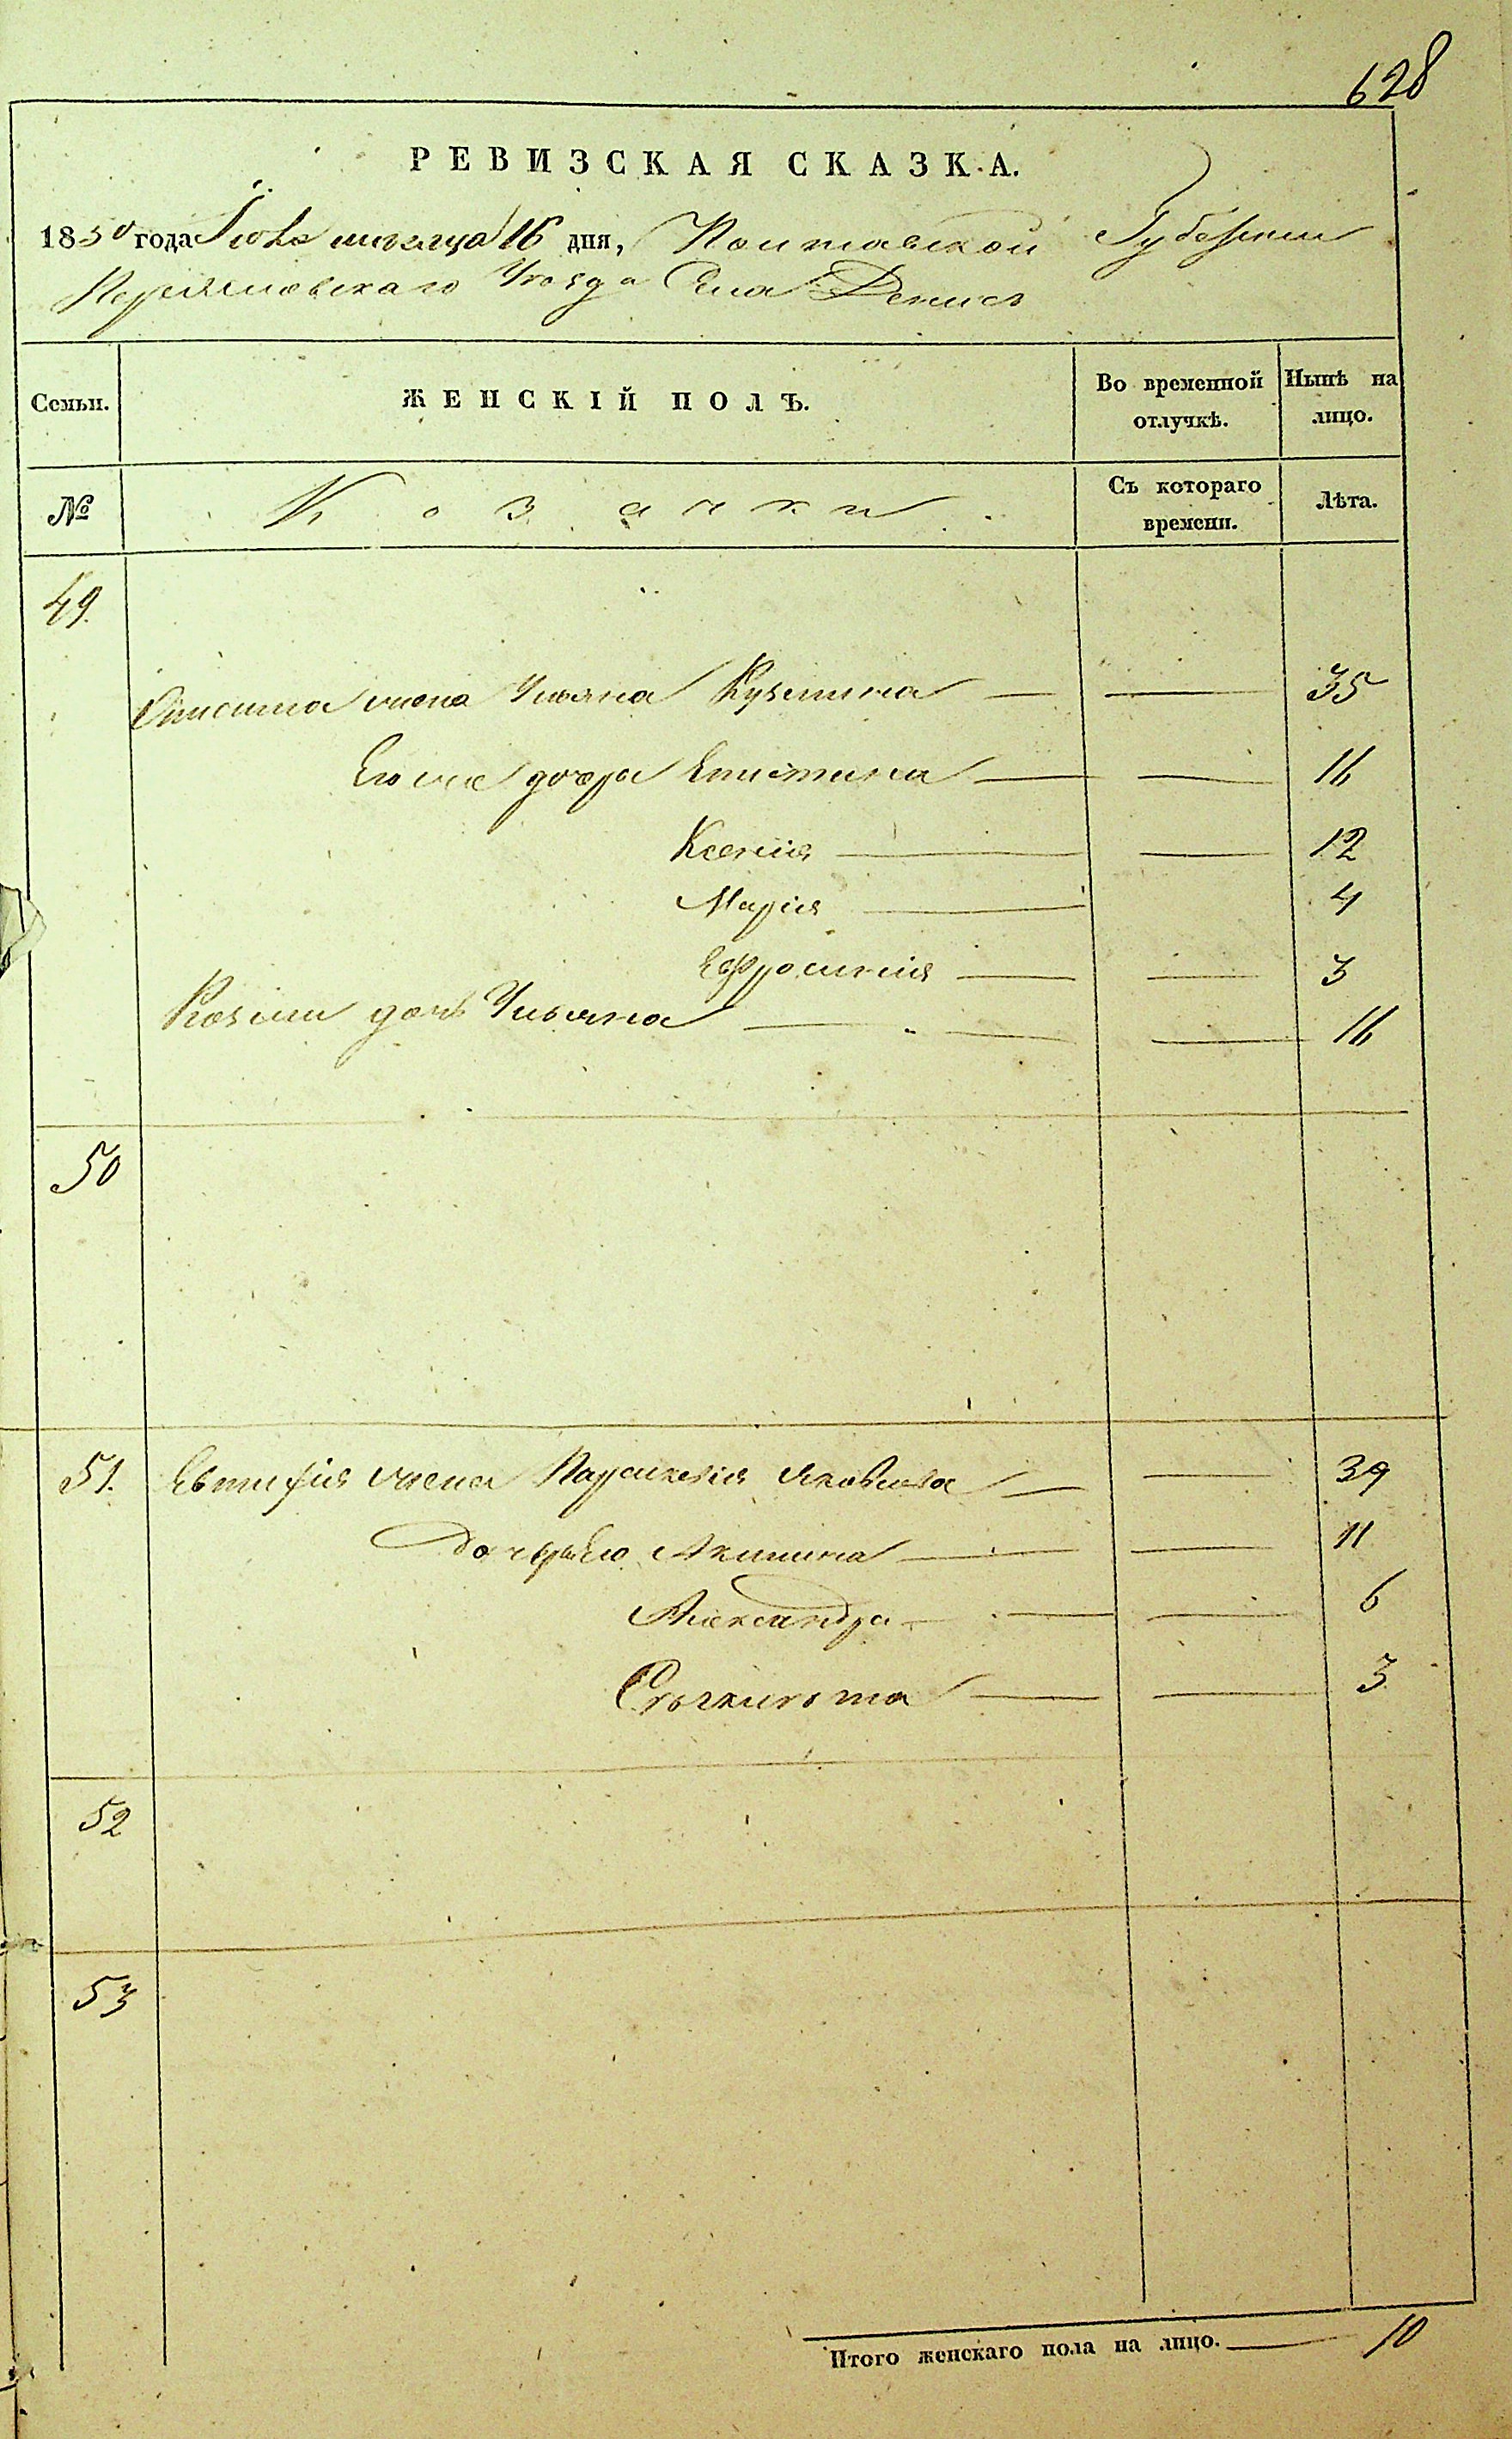 628
РЕВИЗСКАЯ СКАЗКА.
1850 года Июля месяца 16 дня, Полтавской Губернии
Переяславскаго Уезда Села Денисъ
Семьи.
ЖЕНСКІЙ ПОЛЪ.
Во временной отлучкѣ.
Нынѣ на лицо.
№
Козачки
Съ котораго времени.
Лѣта.
49.
Онисима жена Ульяна Кузмина — — 35
Его же дочери Епистима — — 16
Ксенія — — 12
Марія — 4
Ефросинія — — 3
Козмы дочь Ульяна — — 16
50
51. Евтифія жена Параскевія Яковлева — — 39
Дочери Его Акилина — — 11
Александра — — 6
— — 3
52
53
Итого женскаго пола на лицо. — 10